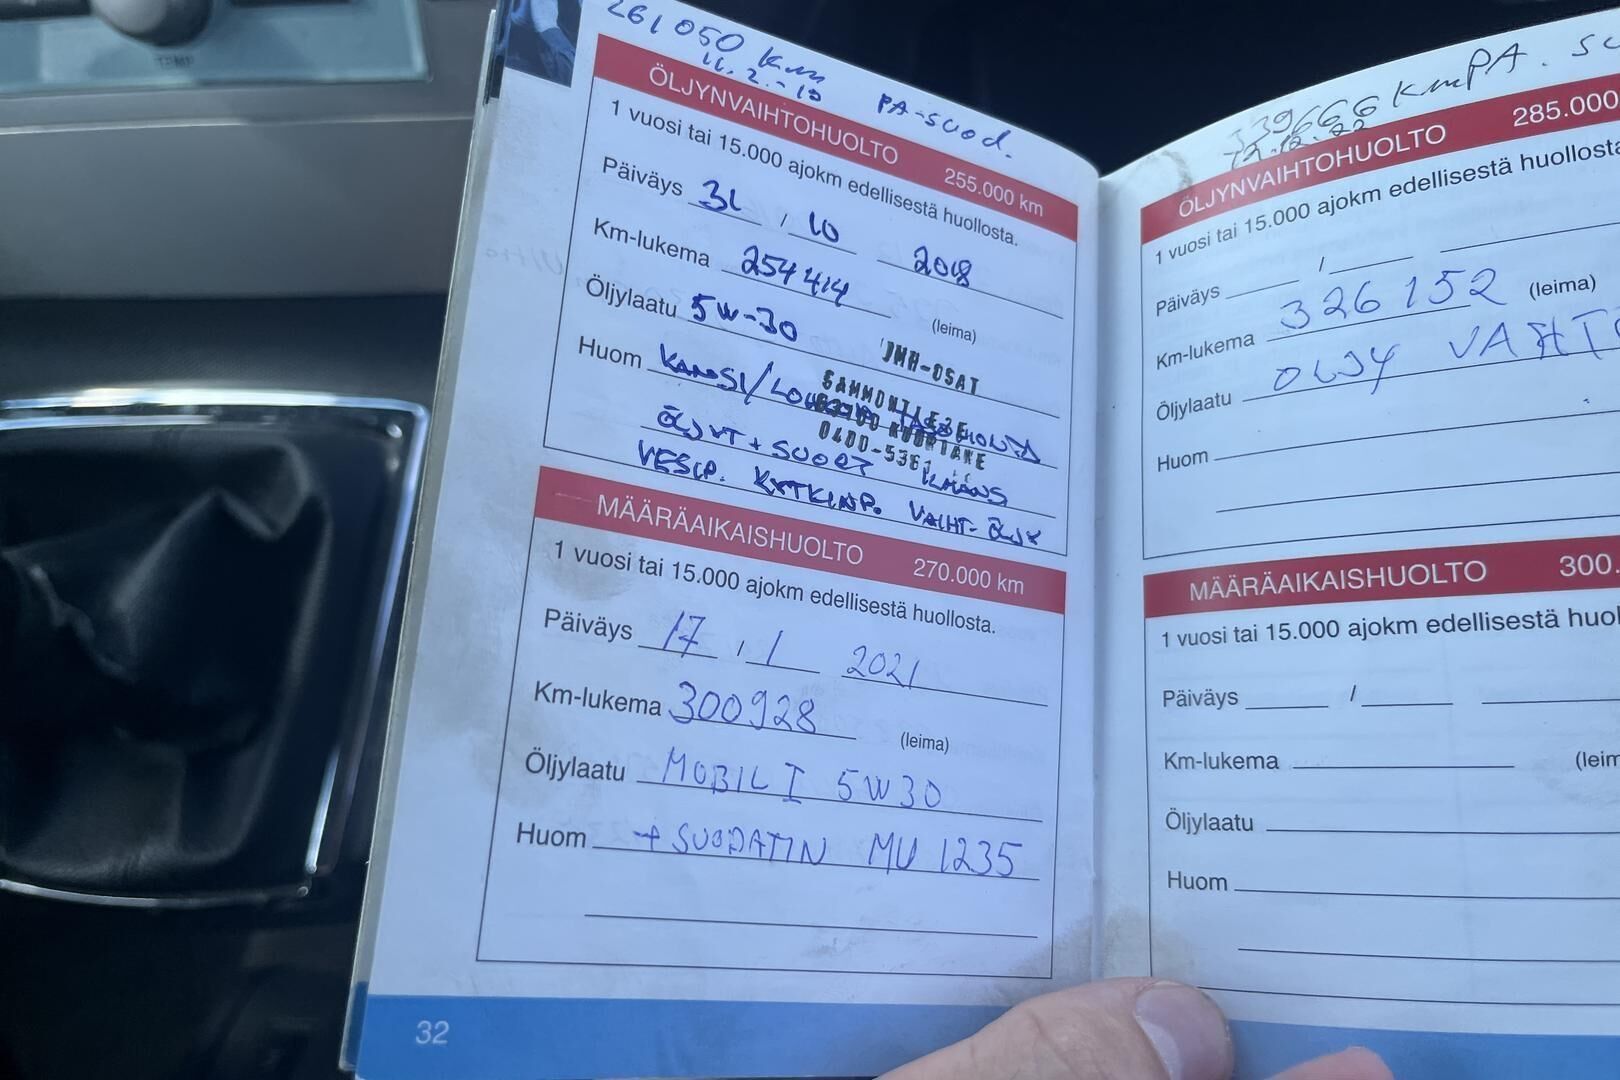 TEMP
261050 km
11.2.-19 PA-suod.
ÖLJYNVAIHTOHUOLTO 255.000 km
1 vuosi tai 15.000 ajokm edellisestä huollosta.
Päiväys 31 / 10 2018
Km-lukema 254414
(leima)
Öljylaatu 5W-30
JMH-OSAT
Huom KANSI/
0400-5361
ÖLJYT + SUODT ILMANS
VESIP. KYTKINP. VAIHT-ÖLJY
MÄÄRÄAIKAISHUOLTO 270.000 km
1 vuosi tai 15.000 ajokm edellisestä huollosta.
Päiväys 17 / 1 2021
Km-lukema 300928
(leima)
Öljylaatu MOBIL I 5W30
Huom + SUODATIN MU 1235
32
339666 km PA. su
ÖLJYNVAIHTOHUOLTO 285.000
1 vuosi tai 15.000 ajokm edellisestä huollosta
Päiväys /
Km-lukema 326152 (leima)
Öljylaatu OLJY VAHTO
Huom
MÄÄRÄAIKAISHUOLTO 300.
1 vuosi tai 15.000 ajokm edellisestä huol
Päiväys /
Km-lukema (leim
Öljylaatu
Huom